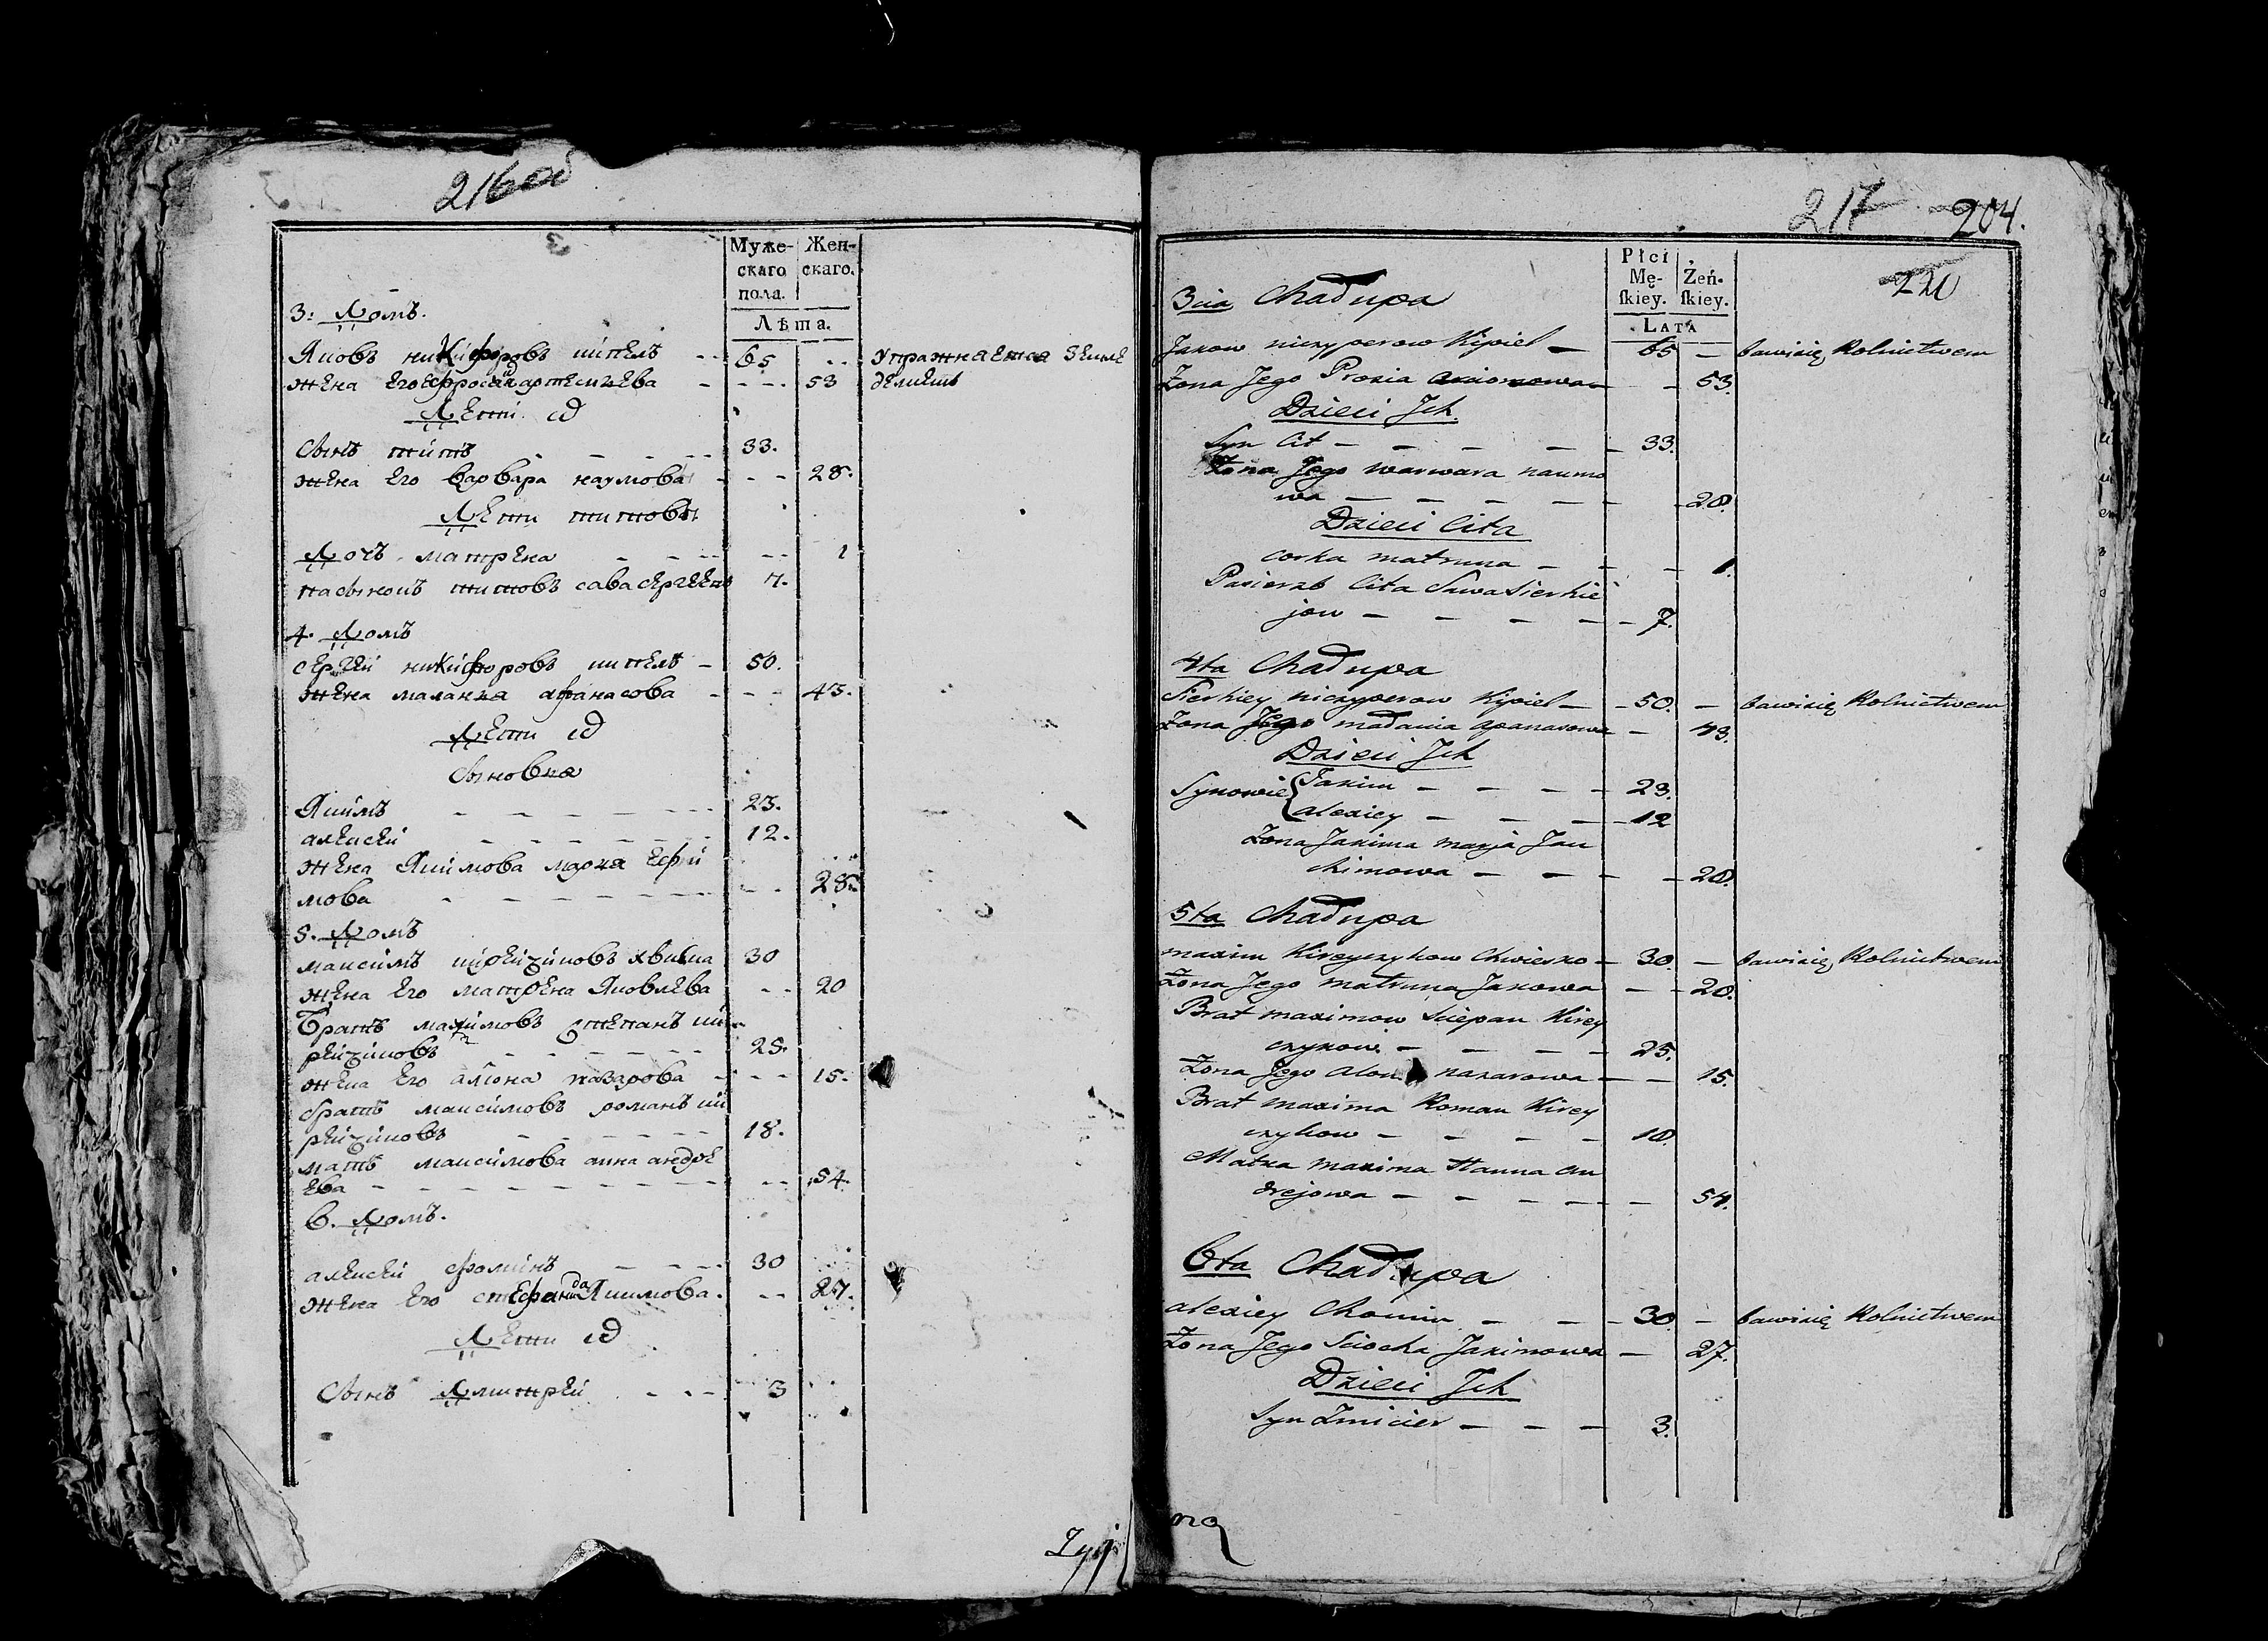 216 об
Муже-
скаго
пола.
Жен-
скаго.
Лѣта.
3: Домъ.
Яковъ никифоровъ кипель -- 65 --
Упражняется земле
делиемъ
жена его Ефросиня артемьева - --- 53
Дети их
Сынъ титъ - - - -- 33.
жена его варвара наумова - - - 28.
Дети титовы
Дочъ матрена - - -- -- 1
пасынокъ титовъ сава сергеевъ 7.
4. Домъ
сергей никифоровъ кипель - 50.
жена маланья афанасова - - - 43.
Дети их
Сыновья
Якимъ - - - - - --- 23.
алексей - - - - - - 12.
жена Якимова марья Ефи
мова - - - - - --- -- 28.
5. Домъ
максимъ кирейчиковъ 30
жена его матрена Яковлева -- 20
братъ максимовъ степанъ ки
рейчиковъ - - - - - - 25.
жена его алиона назарова - - - 15.
братъ максимовъ романъ ки
рейчиковъ - - - - - - 18.
мать максимова анна андре
ева - - - - - - - - - -- 54.
6. Домъ.
алексей фоминъ - - -- 30
жена его степанида Якимова. -- 27.
Дети их
Сынъ Дмитрей - - - 3
Zyj
217 204.
220
Płci
Mę-
skiey.
Żeń-
skiey.
Lata
3cia Chałupa
Jakow niczyperow Kipiel — 65 — bawi się Rolnictwem
Żona Jego Prosia — - 53.
Dzieci Jch
Syn Cit — — — — — 33.
Żona Jego warwara naumo
wa — — — — — 28.
Dzieci Cita
corka matruna — — — 1.
Pasierzb Cita Sawa Sierhie
jow — — — — — 7.
4ta Chałupa
Sierhiey niczyperow Kipiel — 50. — bawi się Rolnictwem
Żona Jego małania apanasowa — 43.
Dzieci Jch
Synowie { Jakim — — — — 23.
alexiey — — — — 12
Żona Jakima marja Jau
chimowa — — — — 28.
5ta Chałupa
maxim Kireyczykow Chwiesko — 30. — bawi się Rolnictwem
Żona Jego matruna Jakowa — — 20.
Brat maximow Sciepan Kirey
czykow — — — — 25.
Żona Jego nazarowa — — 15.
Brat maxima Roman Kirey
czykow — — — — 18.
Matka maxima Hanna an
drejowa — — — — — 54.
6ta Chałupa
alexiey Chomin — — — 30. — bawi się Rolnictwem
Żona Jego Sciocha Jakimowa — 27.
Dzieci Jch
Syn Zmicier — — — 3.